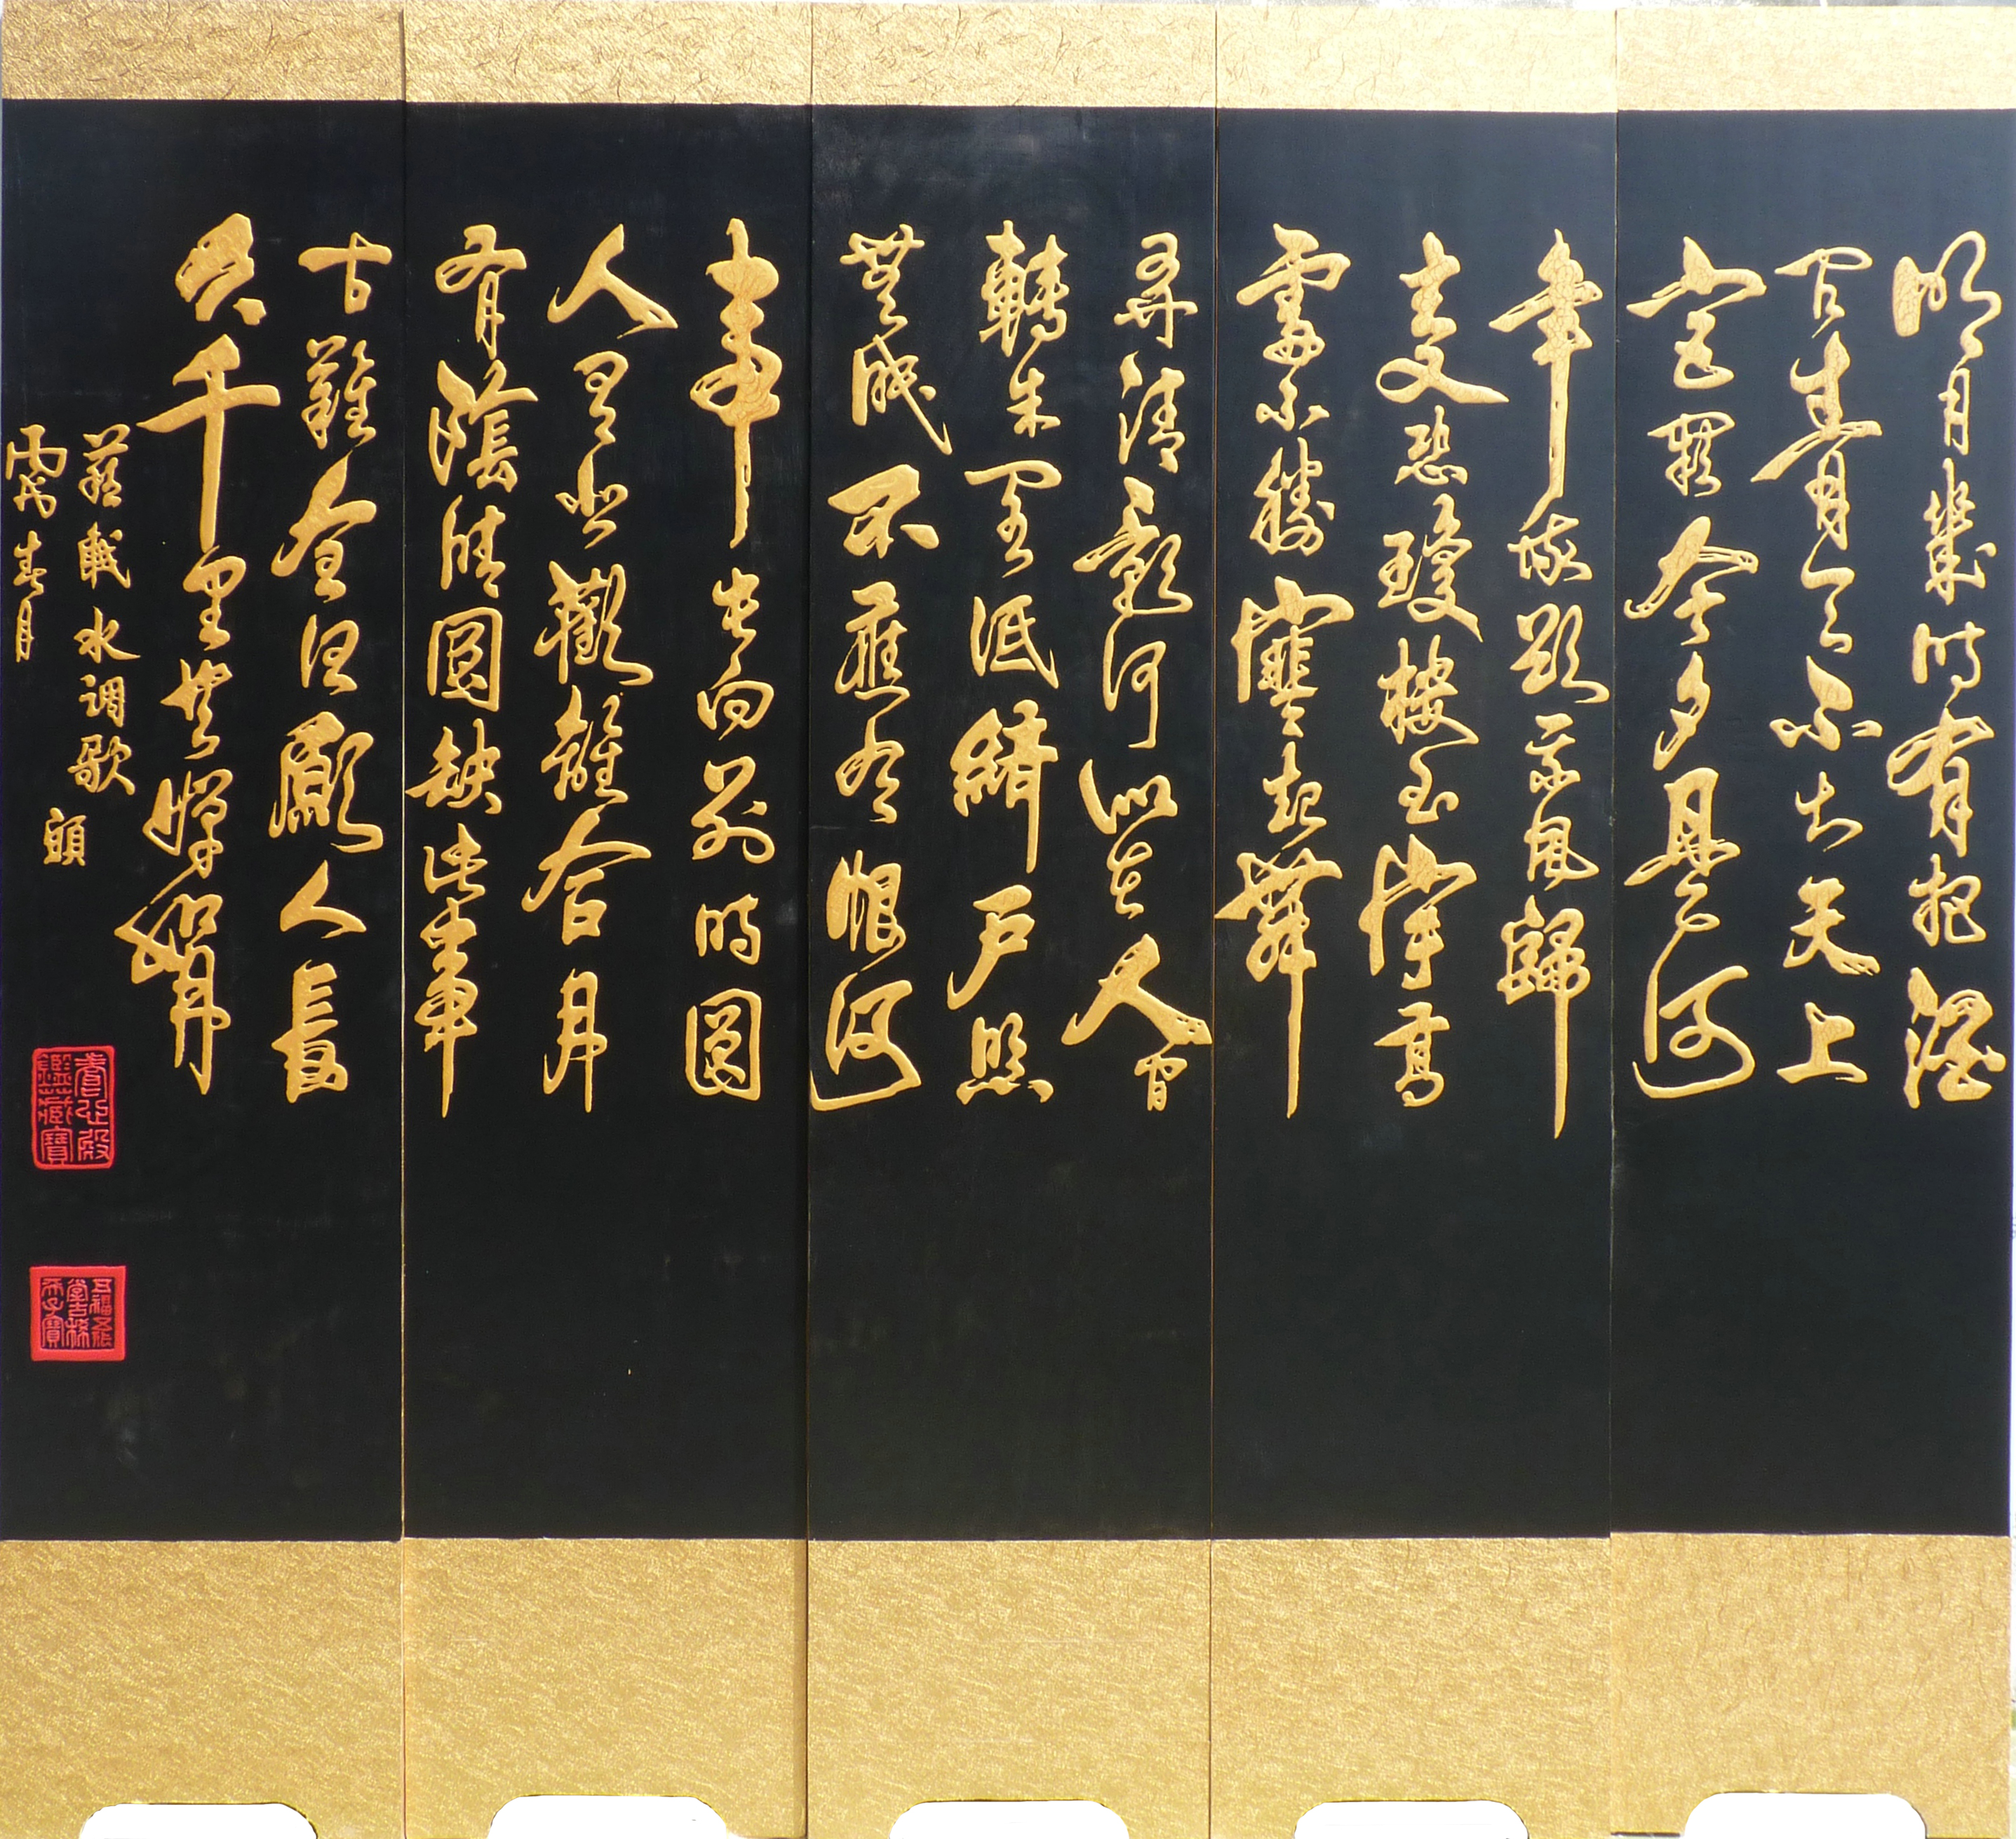 明月幾時有把酒
问青天不知天上
宮闕今夕是何
年我欲乘風歸
去又恐瓊樓玉宇高
處不勝寒起舞
弄清影何似在人間
轉朱閣低綺戶照
無眠不應有恨何
事長向別時圓
人有悲歡離合月
有陰晴圓缺此事
古難全但願人長
久千里共嬋娟
蘇軾水调歌頭
丙戌春月
養心殿鑑藏寶
五福五代堂古稀天子寶